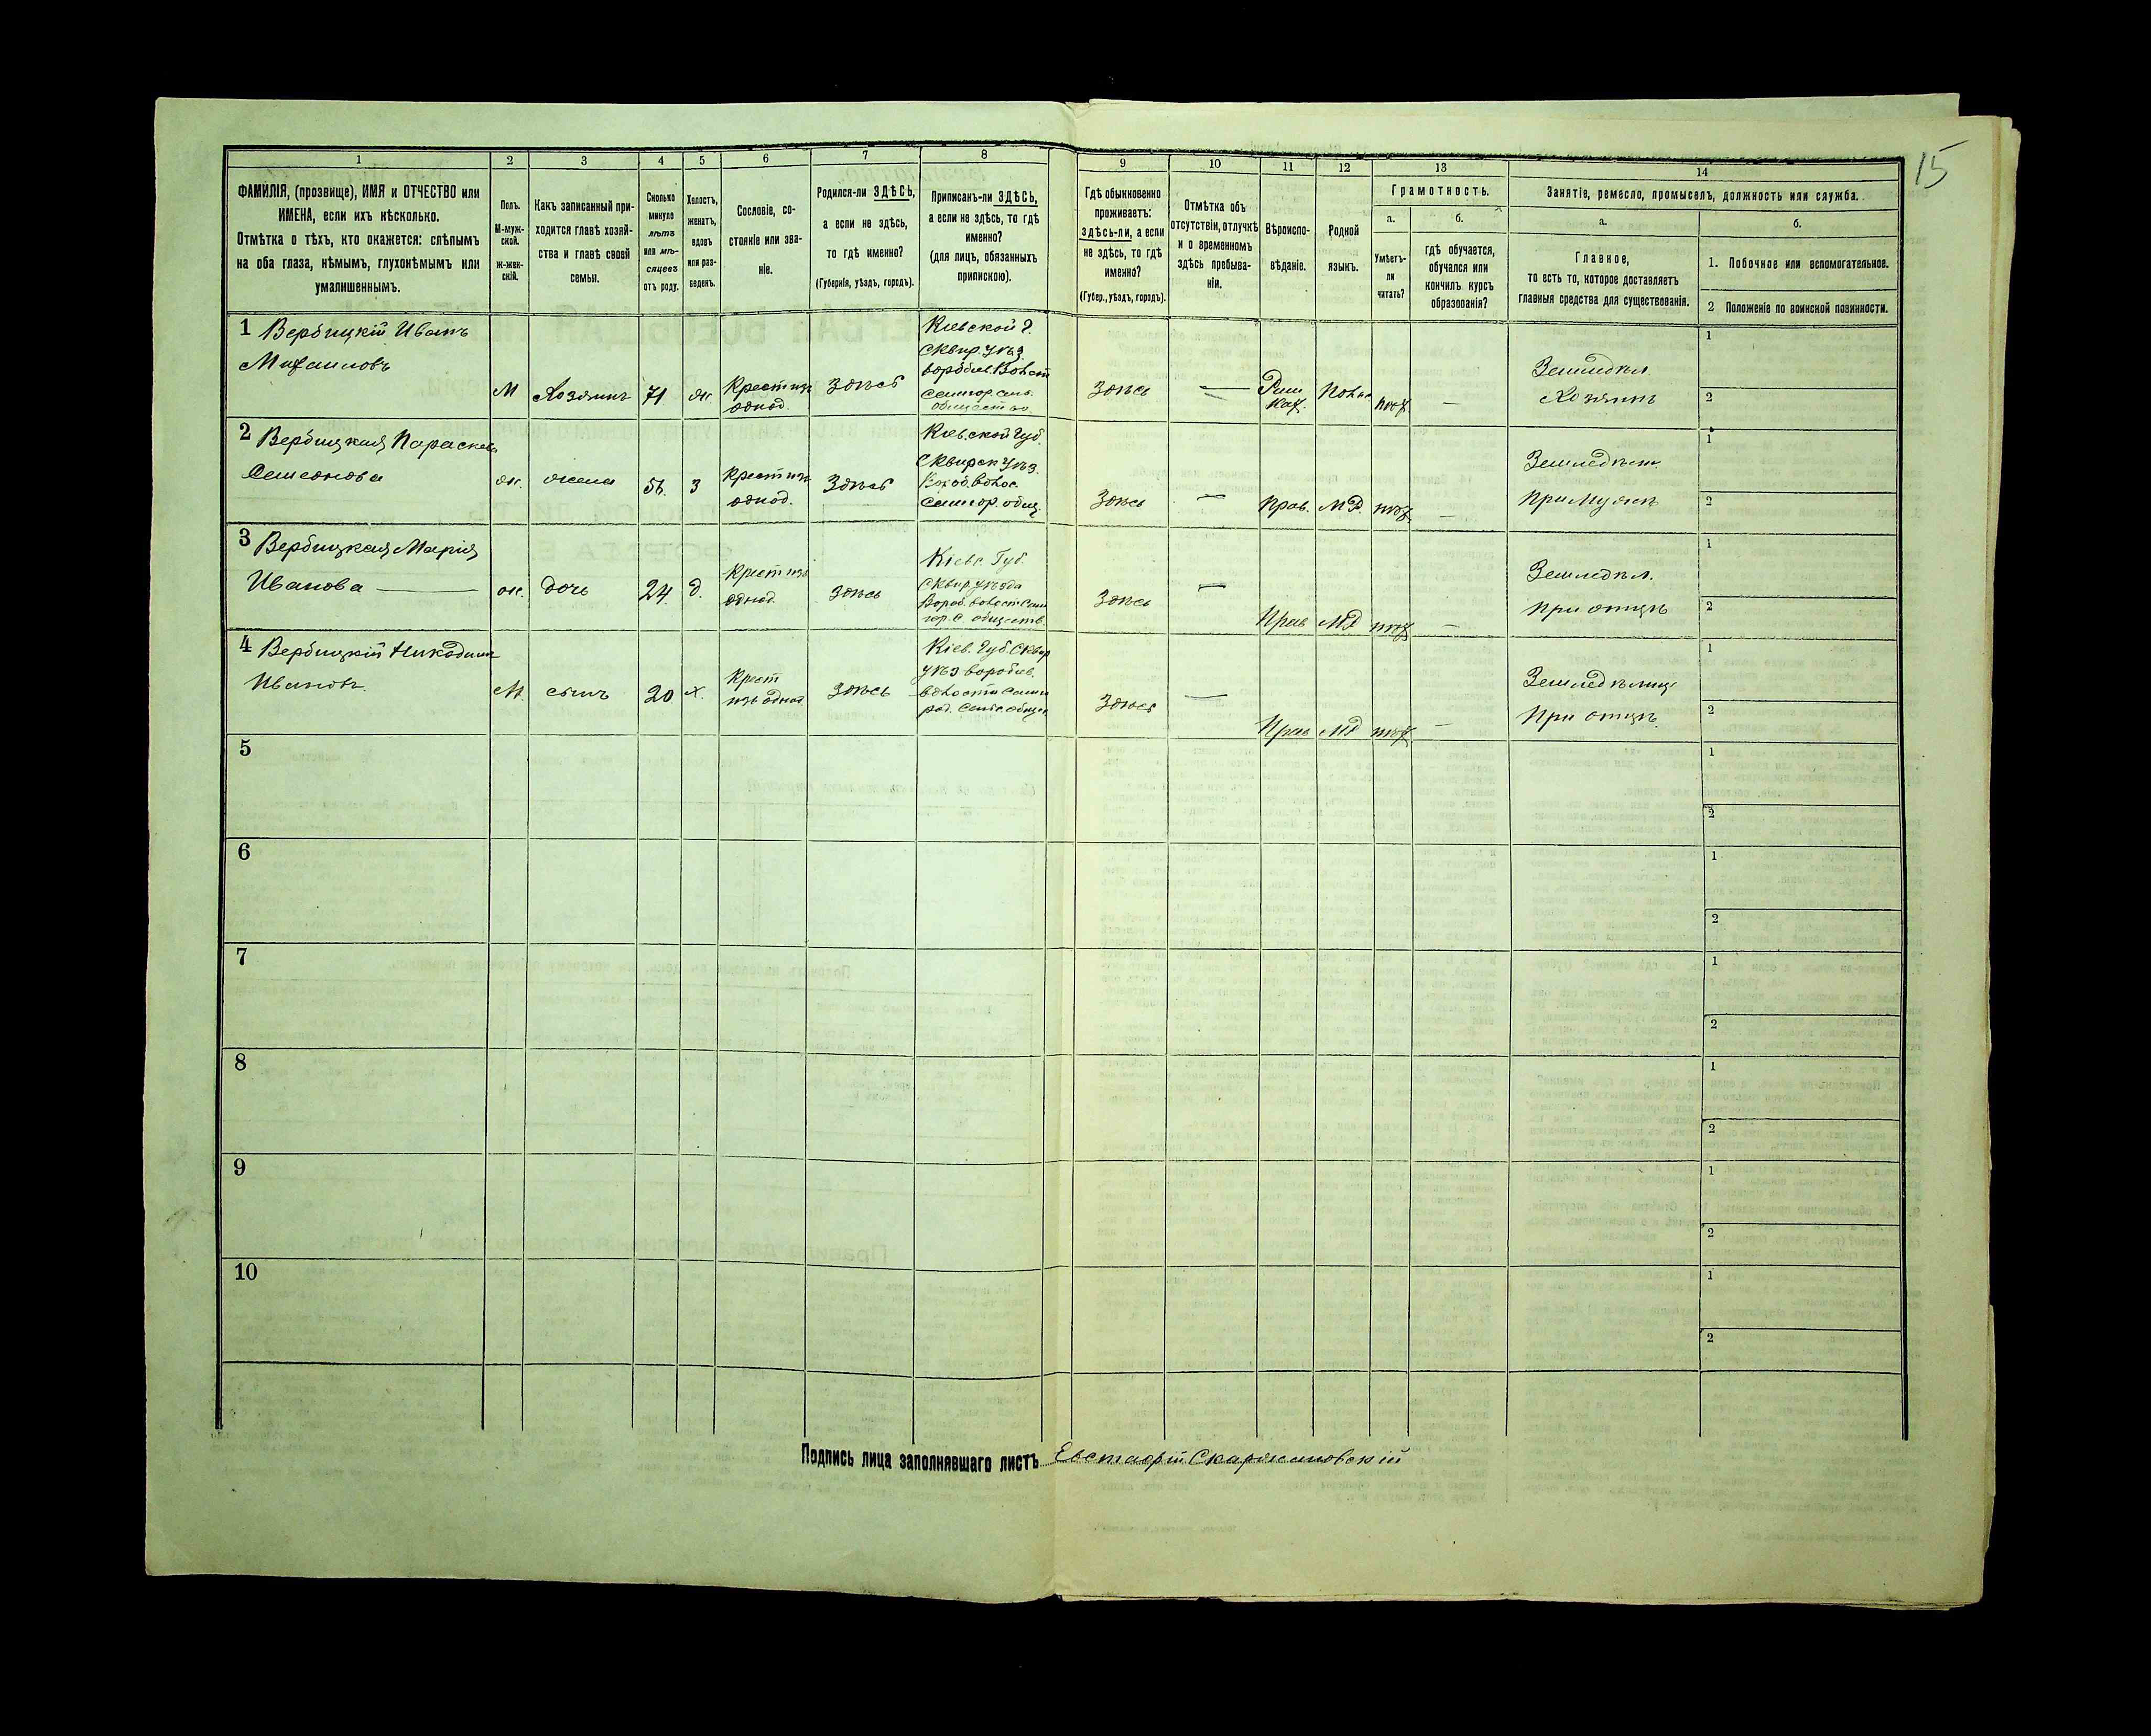 15
1
2
3
4
5
6
7
8
9
10
11
12
13
14
ФАМИЛІЯ, (прозвище), ИМЯ и ОТЧЕСТВО или
ИМЕНА, если ихъ нѣсколько.
Отмѣтка о тѣхъ, кто окажется: слѣпымъ
на оба глаза, нѣмымъ, глухонѣмымъ или
умалишеннымъ.
Полъ.
М-муж-
ской.
ж-жен-
скій.
Какъ записанный при-
ходится главѣ хозяй-
ства и главѣ своей
семьи.
Сколько
минуло
лѣтъ
или мѣ-
сяцевъ
отъ роду.
Холостъ,
женатъ,
вдовъ
или раз-
веденъ.
Сословіе, со-
стояніе или зва-
ніе.
Родился-ли ЗДѢСЬ,
а если не здѣсь,
то гдѣ именно?
(Губернія, уѣздъ, городъ).
Приписанъ-ли ЗДѢСЬ,
а если не здѣсь, то гдѣ
именно?
(для лицъ, обязанныхъ
припискою).
Гдѣ обыкновенно
проживаетъ:
здѣсь-ли, а если
не здѣсь, то гдѣ
именно?
(Губер., уѣздъ, городъ).
Отмѣтка объ
отсутствіи, отлучкѣ
и о временномъ
здѣсь пребыва-
ніи.
Вѣроиспо-
вѣданіе.
Родной
языкъ.
Грамотность.
а.
Умѣетъ-
ли
читать?
б.
гдѣ обучается,
обучался или
кончилъ курсъ
образованія?
Занятіе, ремесло, промыселъ, должность или служба.
а.
Главное,
то есть то, которое доставляетъ
главныя средства для существованія.
б.
1. Побочное или вспомогательное.
2 Положеніе по воинской повинности.
1 Вербицкій Иванъ
Михаиловъ
М
Хозяинъ
71
ж.
Крест изъ
однод.
Здѣсь
Кіевской г.
Сквир. уѣз.
воробіев. Волост
сель.
Здѣсь
—
Рим
Кат.
Земледѣл.
Хозяинъ
1
2
2 Вербицкая Параскева
Семенова
ж.
жена
3
Крест изъ
однод.
Здѣсь
Кіевской Губ.
Сквирск уѣз.
общ.
Здѣсь
—
Прав.
МР.
—
Земледѣл.
При мужѣ
1
2
3 Вербицкая Марія
Иванова —
ж.
дочь
24.
д.
Крест изъ
однод.
здѣсь
Кіевс. Губ.
Сквир. уѣзда
Здѣсь
—
Прав
МР
—
Земледѣл.
При отцѣ
1
2
4 Вербицкій Никодимъ
Ивановъ.
М.
сынъ
20
х.
Крест
изъ однод.
здѣсь
Кіев. Губ. Сквир
уѣз воробіев.
волости
Здѣсь
—
Прав
МР
—
При отцѣ.
1
2
5
1
2
6
1
2
7
1
2
8
1
2
9
1
2
10
1
2
Подпись лица заполнявшаго листъ Евстафій Скаржиновскій